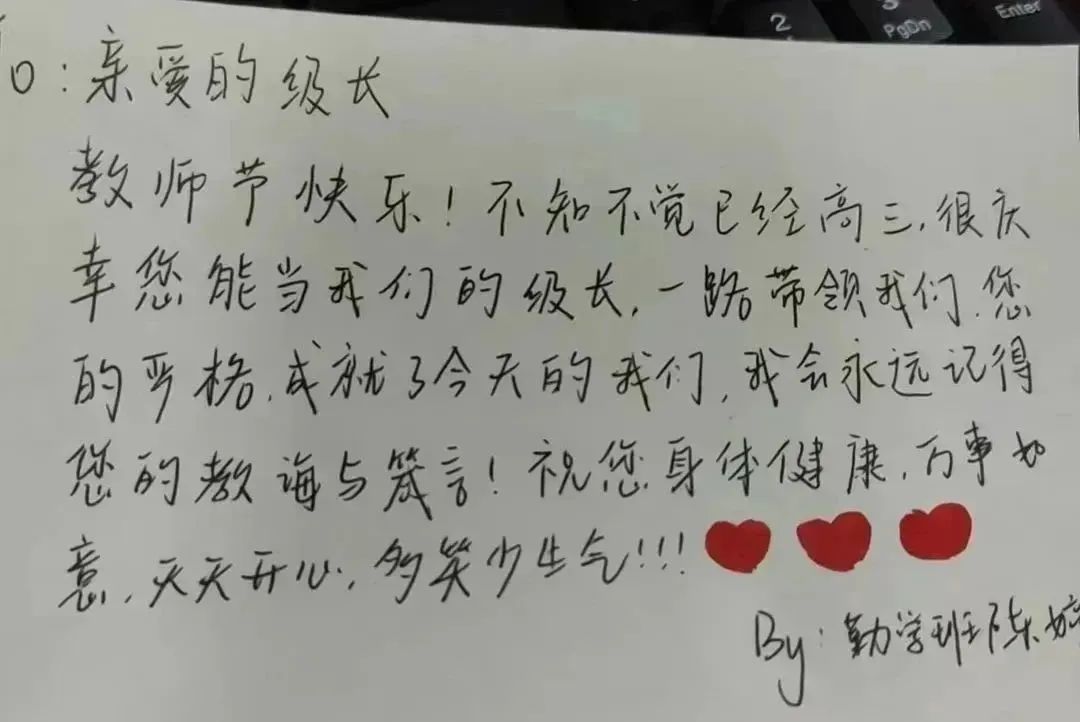 2
3
PgDn
Enter
o：亲爱的级长
教师节快乐！不知不觉已经高三，很庆
幸您能当我们的级长，一路带领我们，您
的严格，成就了今天的我们，我会永远记得
您的教诲与箴言！祝您身体健康，万事如
意，天天开心，多笑少生气!!!
By：勤学班陈